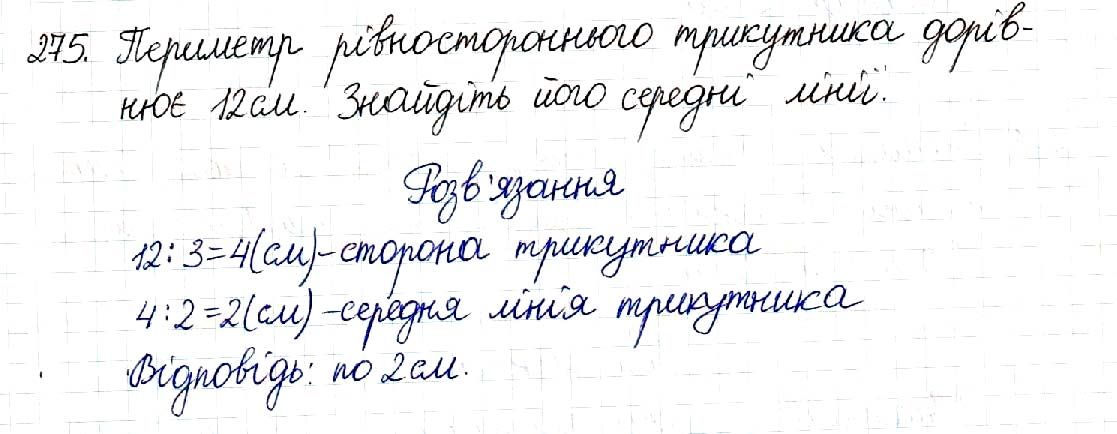 275. Периметр рівностороннього трикутника дорів-
нює 12 см. Знайдіть його середні лінії.
Розв'язання
12 : 3 = 4 (см) - сторона трикутника
4 : 2 = 2 (см) - середня лінія трикутника
Відповідь: по 2 см.